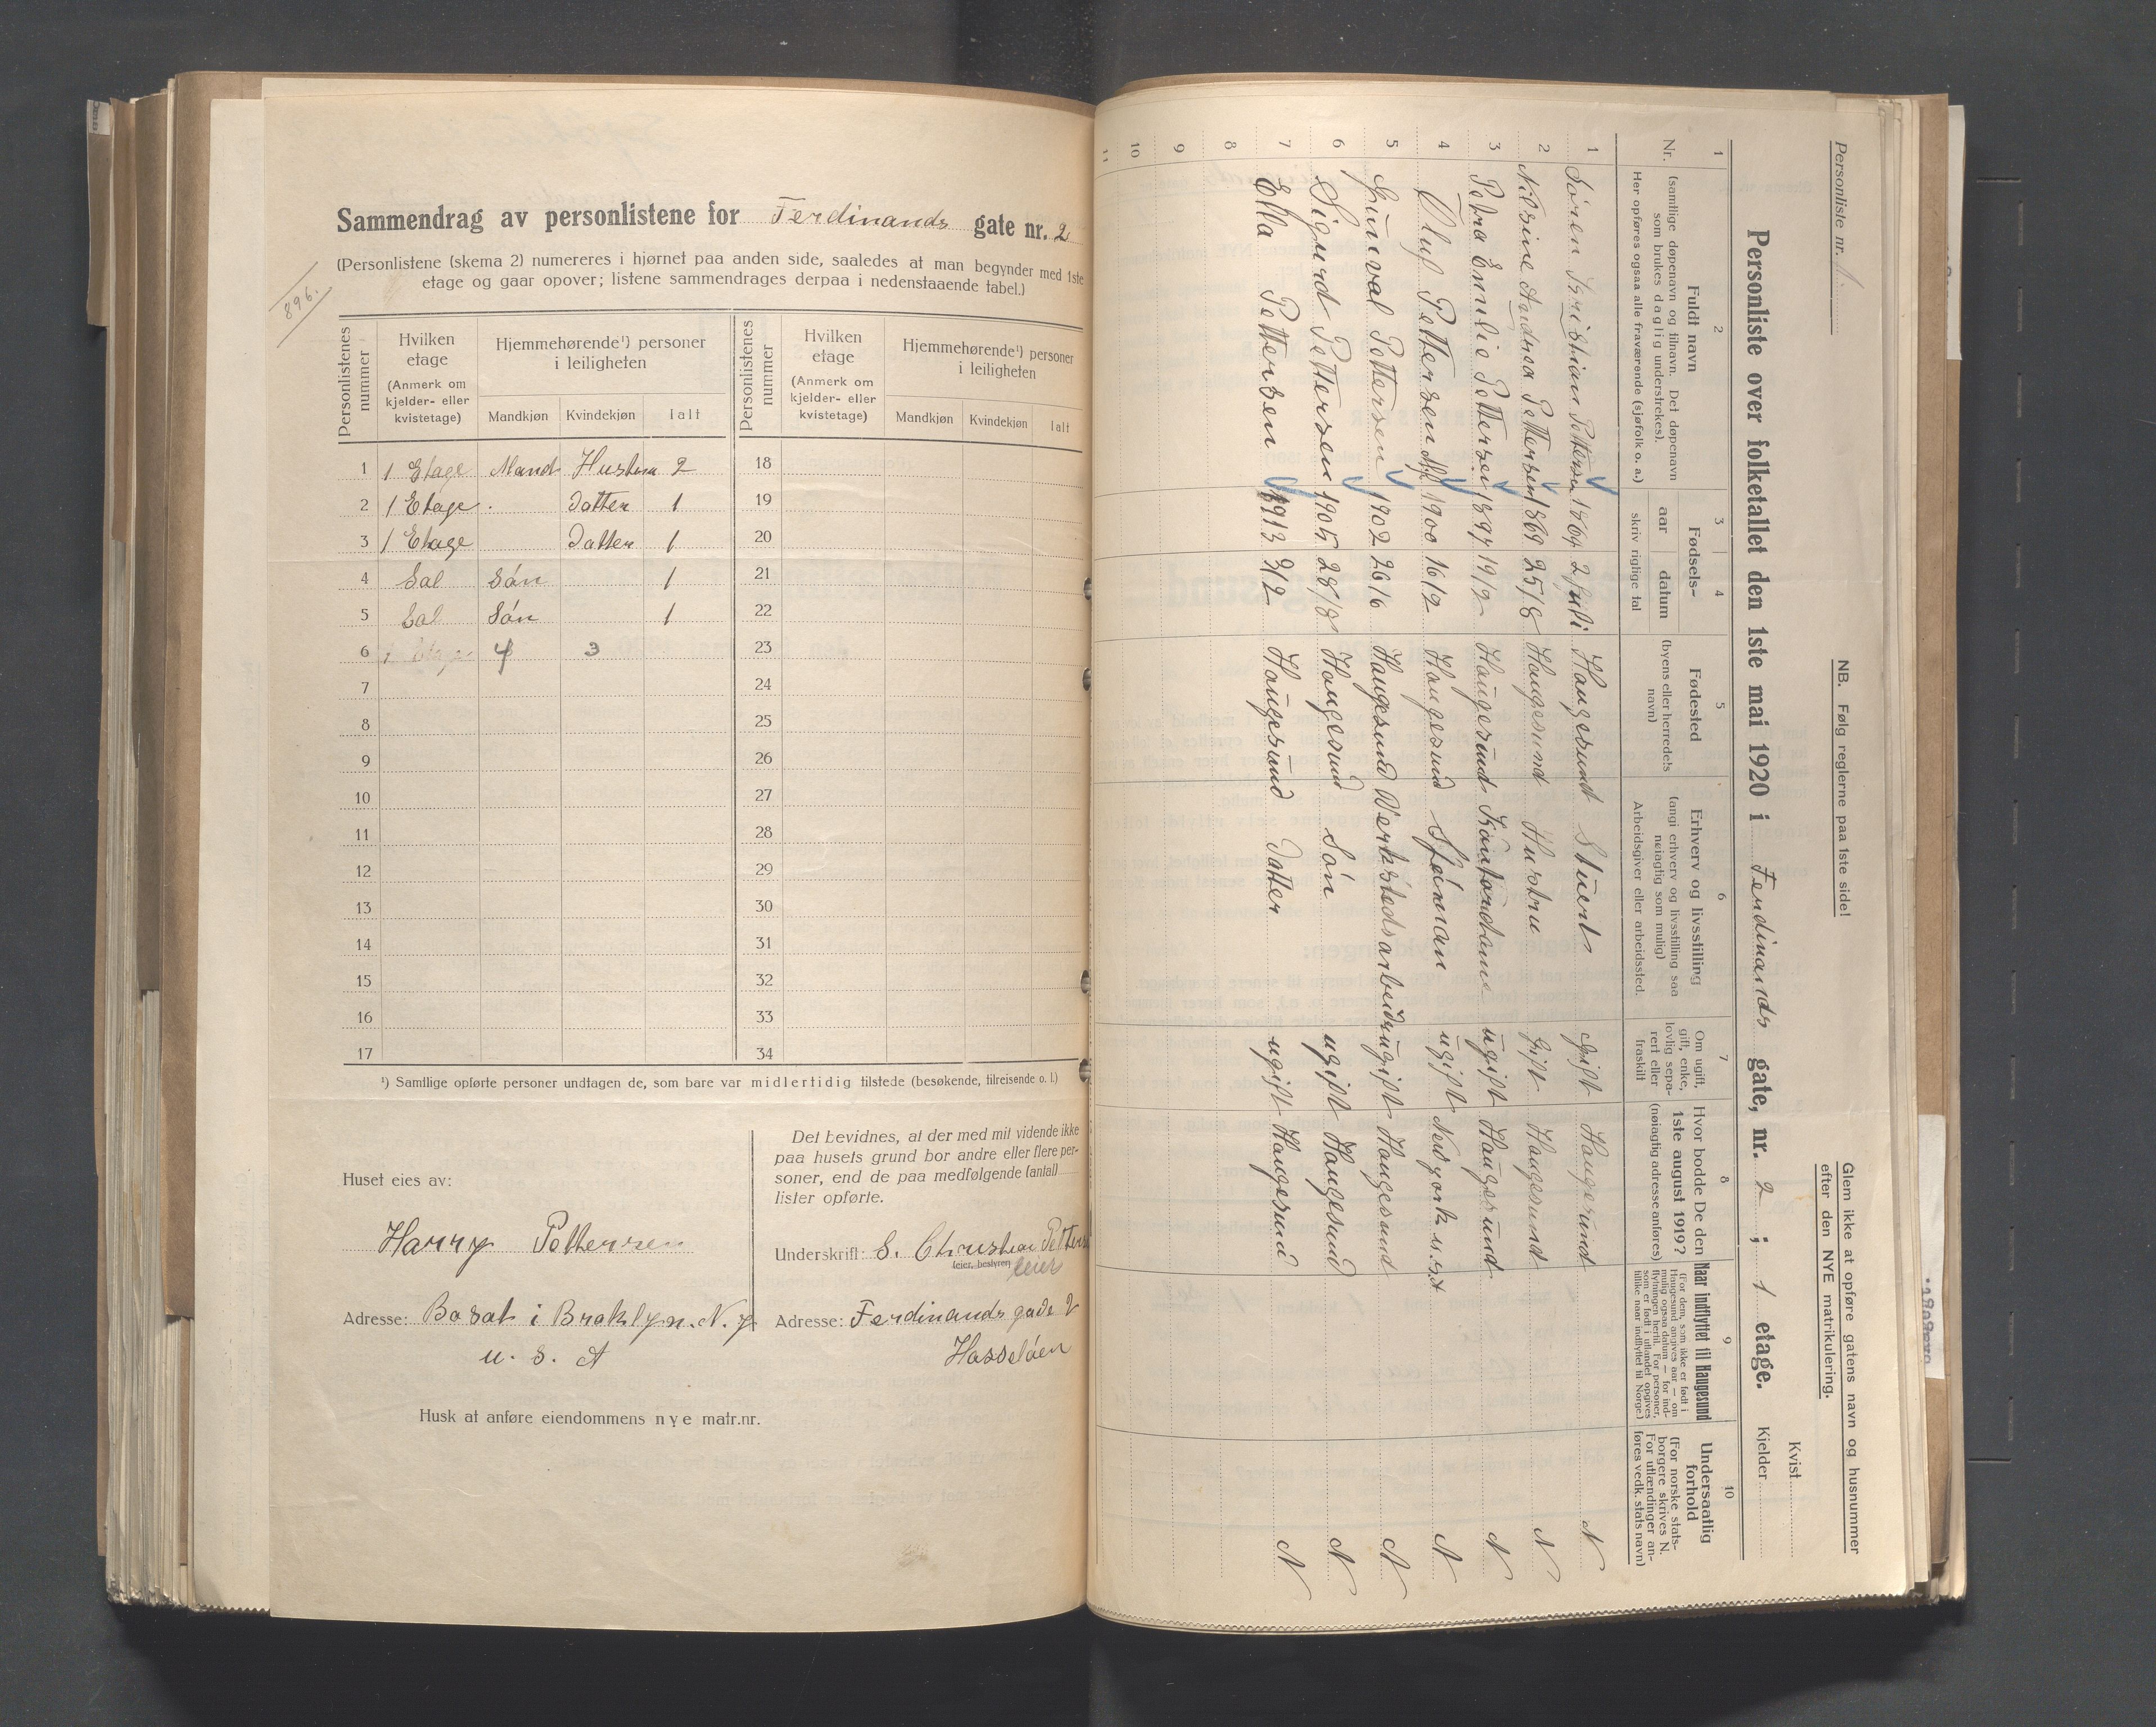 896.
Sammendrag av personlistene for Ferdinands gate nr. 2
(Personlistene (skema 2) numereres i hjørnet paa anden side, saaledes at man begynder med 1ste
etage og gaar opover; listene sammendrages derpaa i nedenstaaende tabel.)
Personlistenes nummer | Hvilken etage (Anmerk om kjelder- eller kvistetage) | Hjemmehørende¹) personer i leiligheten | Mandkjøn | Kvindekjøn | Ialt
Personlistenes nummer | Hvilken etage (Anmerk om kjelder- eller kvistetage) | Hjemmehørende¹) personer i leiligheten | Mandkjøn | Kvindekjøn | Ialt
1 1 Etage Mand Hustru 2 18
2 1 Etage . Datter 1 19
3 1 Etage Datter 1 20
4 Sal Són 1 21
5 Sal Són 1 22
6 1 Etage 4 3 23
7 24
8 25
9 26
10 27
11 28
12 29
13 30
14 31
15 32
16 33
17 34
¹) Samtlige opførte personer undtagen de, som bare var midlertidig tilstede (besøkende, tilreisende o. l.)
Huset eies av:
Harry Pettersen
Adresse: Bosat i Broklyn. N. y
u. S. A
Det bevidnes, at der med mit vidende ikke
paa husets grund bor andre eller flere per-
soner, end de paa medfølgende (antal)
lister opførte.
Underskrift: S. Christian Petters
(eier, bestyrer)
eier
Adresse: Ferdinands gade 2
Hasseløen
Husk at anføre eiendommens nye matr.nr.
Personliste nr. 1.
NB. Følg reglerne paa 1ste side!
Glem ikke at opføre gatens navn og husnummer
efter den NYE matrikulering.
Personliste over folketallet den 1ste mai 1920 i Ferdinands gate, nr. 2 ; 1 etage.
Kvist
Kjelder
1 2 3 4 5 6 7 8 9 10
Nr.
Fuldt navn
(samtlige døpenavn og tilnavn. Det døpenavn
som brukes daglig understrekes).
Her opføres ogsaa alle fraværende (sjøfolk o. a.)
Fødsels-
aar | datum
skriv rigtige tal
Fødested
(byens eller herredets
navn)
Erhverv og livsstilling
(angi erhverv og livsstilling saa
nøiagtig som mulig)
Arbeidsgiver eller arbeidssted.
Om ugift,
gift, enke,
lovlig sepa-
rert eller
fraskilt
Hvor bodde De den
1ste august 1919?
(nøiagtig adresse anføres)
Naar indflyttet til Haugesund
(For dem, som ikke er født i
Haugesund angives aar — om
mulig ogsaa datum — for ind-
flytningen hertil. For personer,
som er født i utlandet opgives
tillike naar indflyttet til Norge)
Undersaatlig
forhold
(For norske stats-
borgere skrives N.
For utlændinger an-
føres vedk. stats navn)
1 Sóren Kristian Pettersen 1864 2 Juli Haugesund Stuert Gift Haugesund N
2 Nilsine Andrea Pettersen 1869 25/8 Haugesund Hustru Gift Haugesund N
3 Petra Emilie Pettersen 1897 19/2 Haugesund Kontordame ugift Haugesund N
4 Oluf Pettersen 1900 16/2 Haugesund Sjóman ugift New york u.s.A N
5 Gunval Pettersen 1902 26/6 Haugesund Verkstedsarbeider ugift Haugesund N
6 Sigurd Pettersen 1905 28/8 Haugesund Són ugift Haugesund N
7 Ella Pettersen 1913 3/2 Haugesund Datter ugift Haugesund N
8
9
10
11